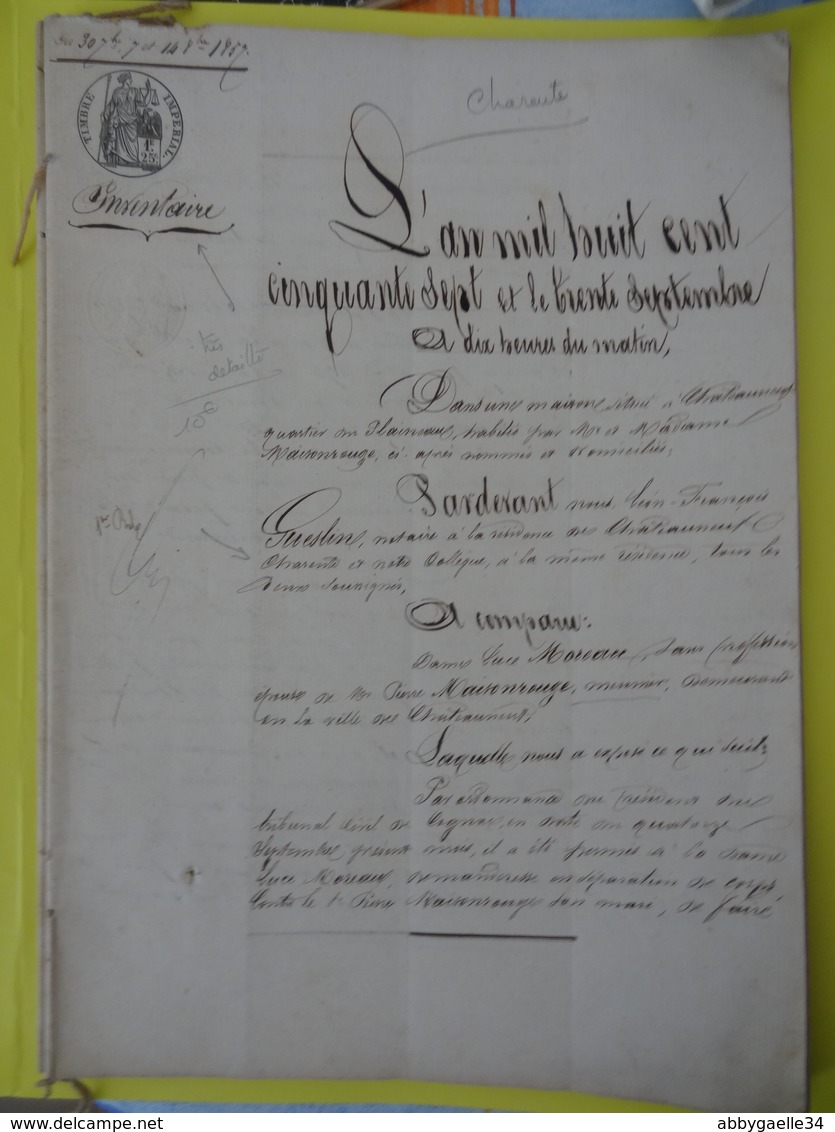 Du 30 7bre, 7 et 14 8bre 1857.
TIMBRE IMPERIAL
1F. 25C.
Inventaire
Charente
très
detaillé
L'an mil huit cent
cinquante Sept et le trente Septembre
A dix heures du matin,
Dans une maison située à Chateauneuf
quartier du Plaineau, habitée par Mr et Madame
Maisonrouge, ci-après nommés et domiciliés,
Pardevant nous Léon-François
Gueslin, notaire à la résidence de Châteauneuf
Charente et notre Collègue, à la même résidence, tous les
deux soussignés,
A comparu:
Dame Luce Moreau, sans profession
épouse de Mr Pierre Maisonrouge, meunier, demeurant
en la ville de Châteauneuf,
Laquelle nous a exposé ce qui suit;
Par ordonnance du Président du
tribunal Civil de Cognac, en date du quatorze
Septembre présent mois, il a été permis à la dame
Luce Moreau, demanderesse en séparation de corps
Contre le Sr Pierre Maisonrouge son mari, de faire
abbygaelle34